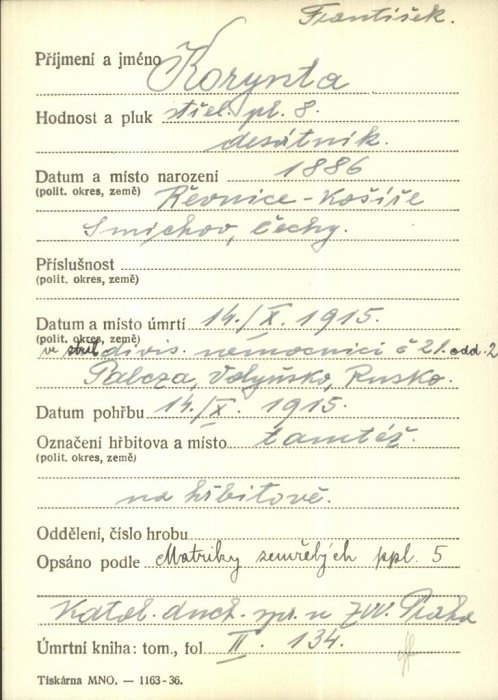 František.
Příjmení a jméno Korynta
Hodnost a pluk střel. pl. 8.
desátník.
Datum a místo narození 1886
(polit. okres, země) Řevnice - Košíře
Smíchov, Čechy.
Příslušnost
(polit. okres, země)
Datum a místo úmrtí 14./X. 1915.
(polit. okres, země)
v divis. nemocnici č 21. odd. 2
Palcza, Volyňsko, Rusko.
Datum pohřbu 14./X. 1915.
Označení hřbitova a místo tamtéž.
(polit. okres, země)
na hřbitově.
Oddělení, číslo hrobu
Opsáno podle Matriky zemřelých ppl. 5
Katol. duch. spr. u ZVV. Praha
Úmrtní kniha: tom., fol II. 134.
Tiskárna MNO. — 1163-36.